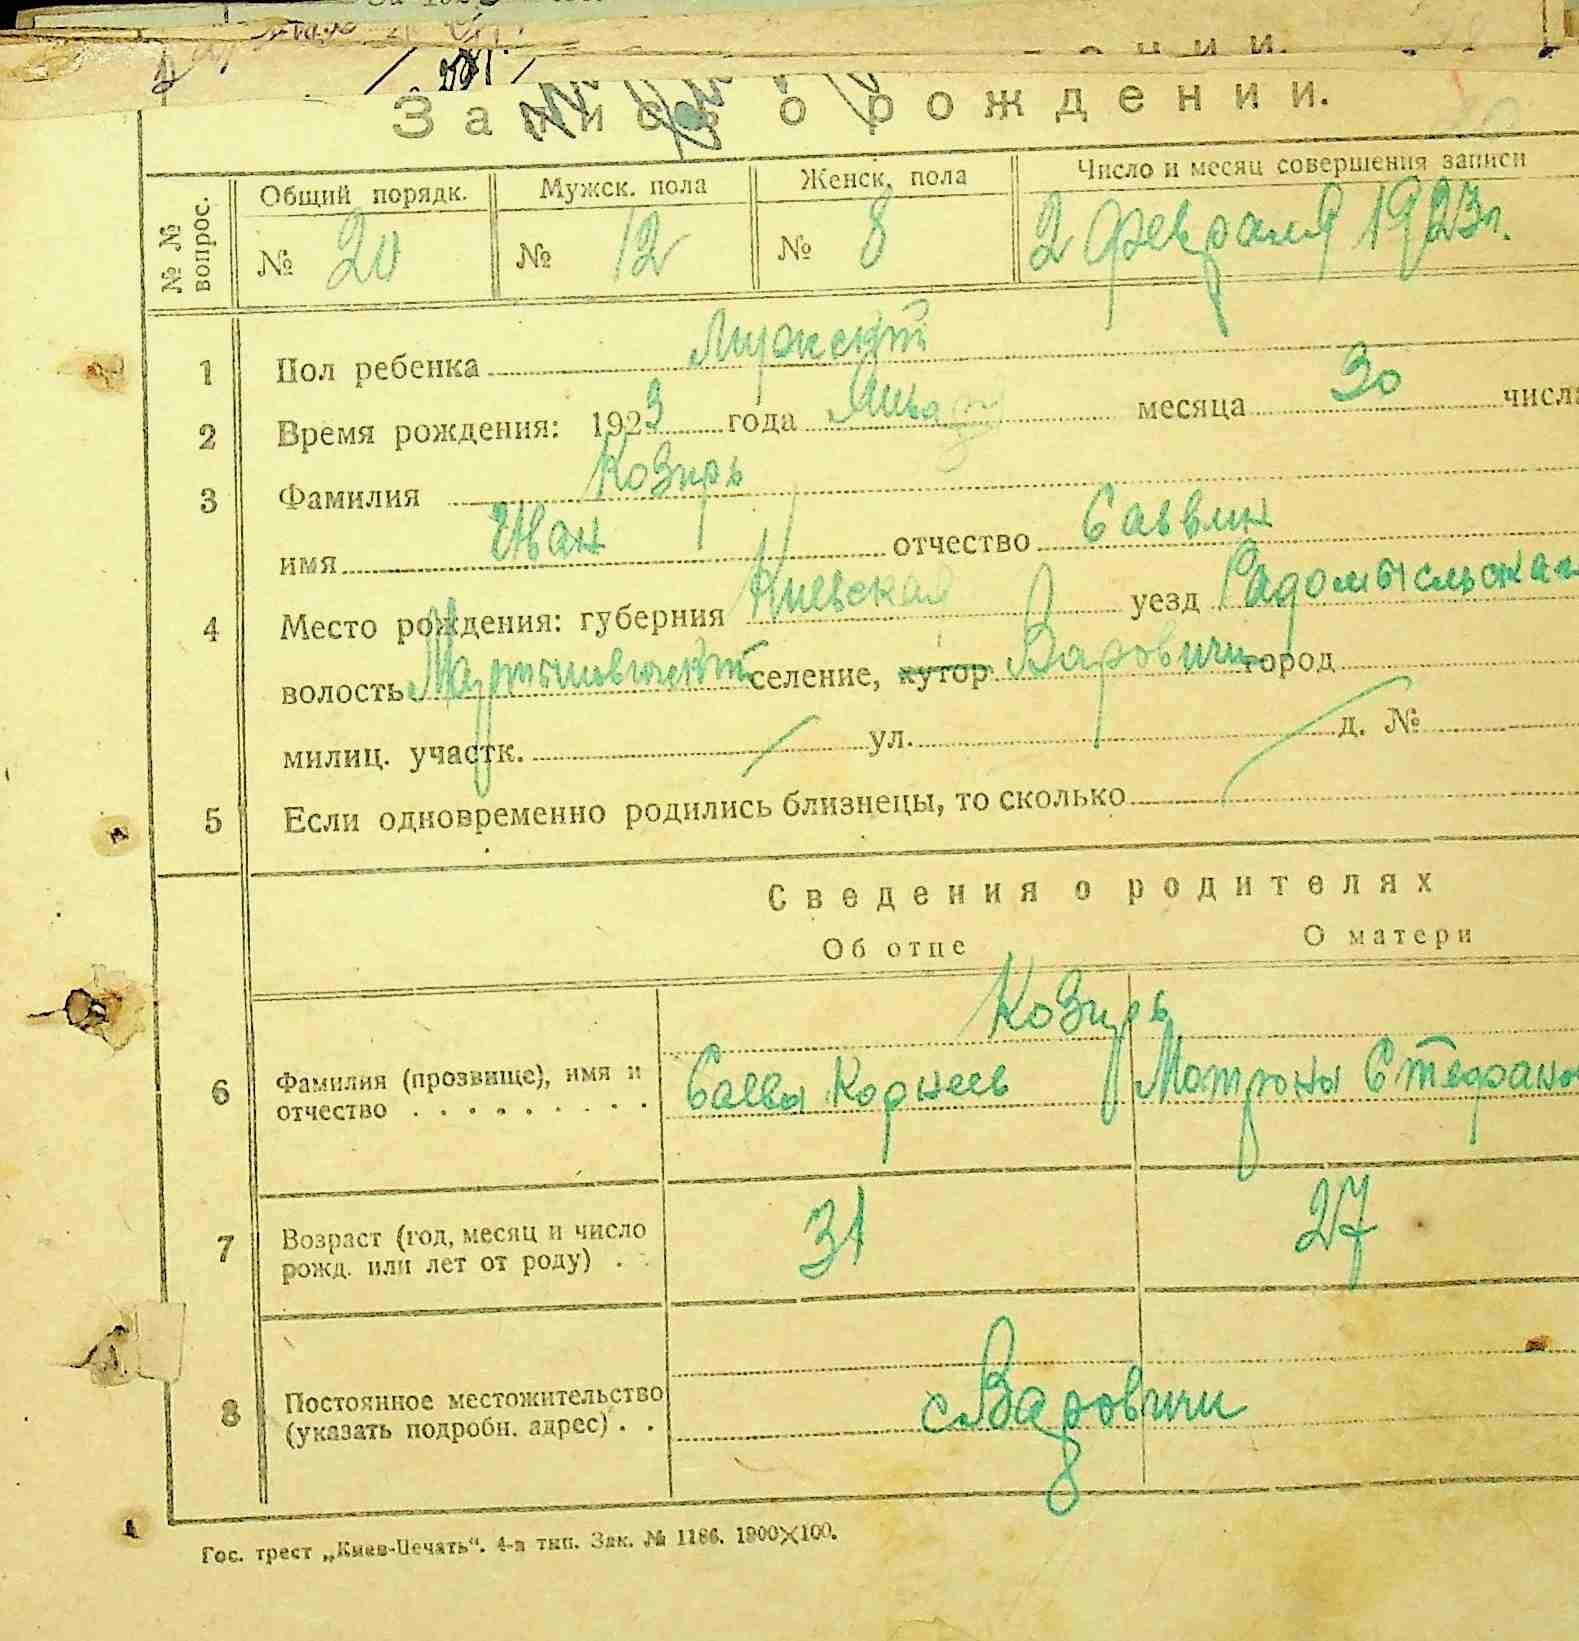 Запись о рождении.
№ № вопрос.
Общий порядк. Мужск. пола Женск. пола Число и месяц совершения записи
№ 20 № 12 № 8 2 февраля 1923г.
1 Пол ребенка Мужский
2 Время рождения: 1923 года Января месяца 30 числа
3 Фамилия Козирь
имя Иван отчество Саввин
4 Место рождения: губерния Киевская уезд Радомысльская
волость Мартыновический селение, хутор Варовичи город
милиц. участк. ул. д. №
5 Если одновременно родились близнецы, то сколько
Сведения о родителях
Об отце О матери
Козирь
6 Фамилия (прозвище), имя и
отчество . . . . . . . . . Саввы Корнеев Мотроны Стефанов
7 Возраст (год, месяц и число
рожд. или лет от роду) . . 31 27
8 Постоянное местожительство
(указать подробн. адрес) . . с. Варовичи
Гос. трест „Киев-Печать“. 4-я тип. Зак. № 1186. 1900×100.